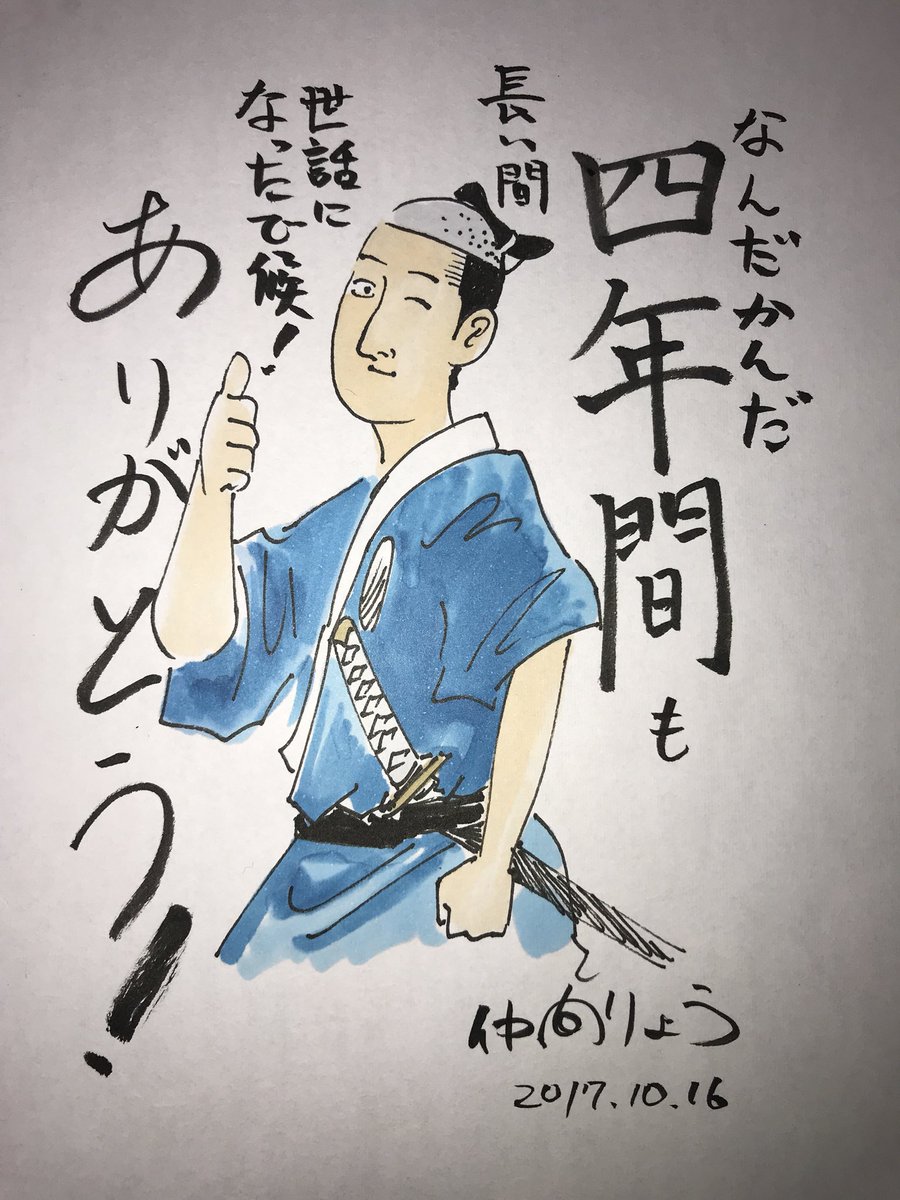 なんだかんだ
四年間も
長い間
世話に
なったで候!
ありがとう!
仲向りょう
2017.10.16